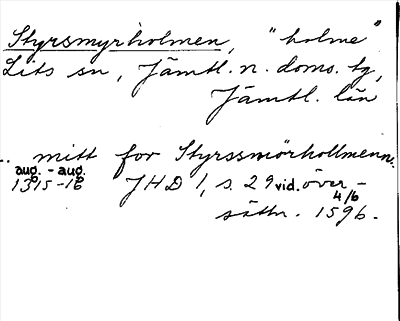 Styrsmyrholmen, "holme"
Lits sn, Jämtl. n. doms. tg,
Jämtl. län
.. mitt for Styrssmörhollmenn.
aug. - aug.
1315-16 JHD 1, s. 29 vid. över-
4/6
sättn. 1596.